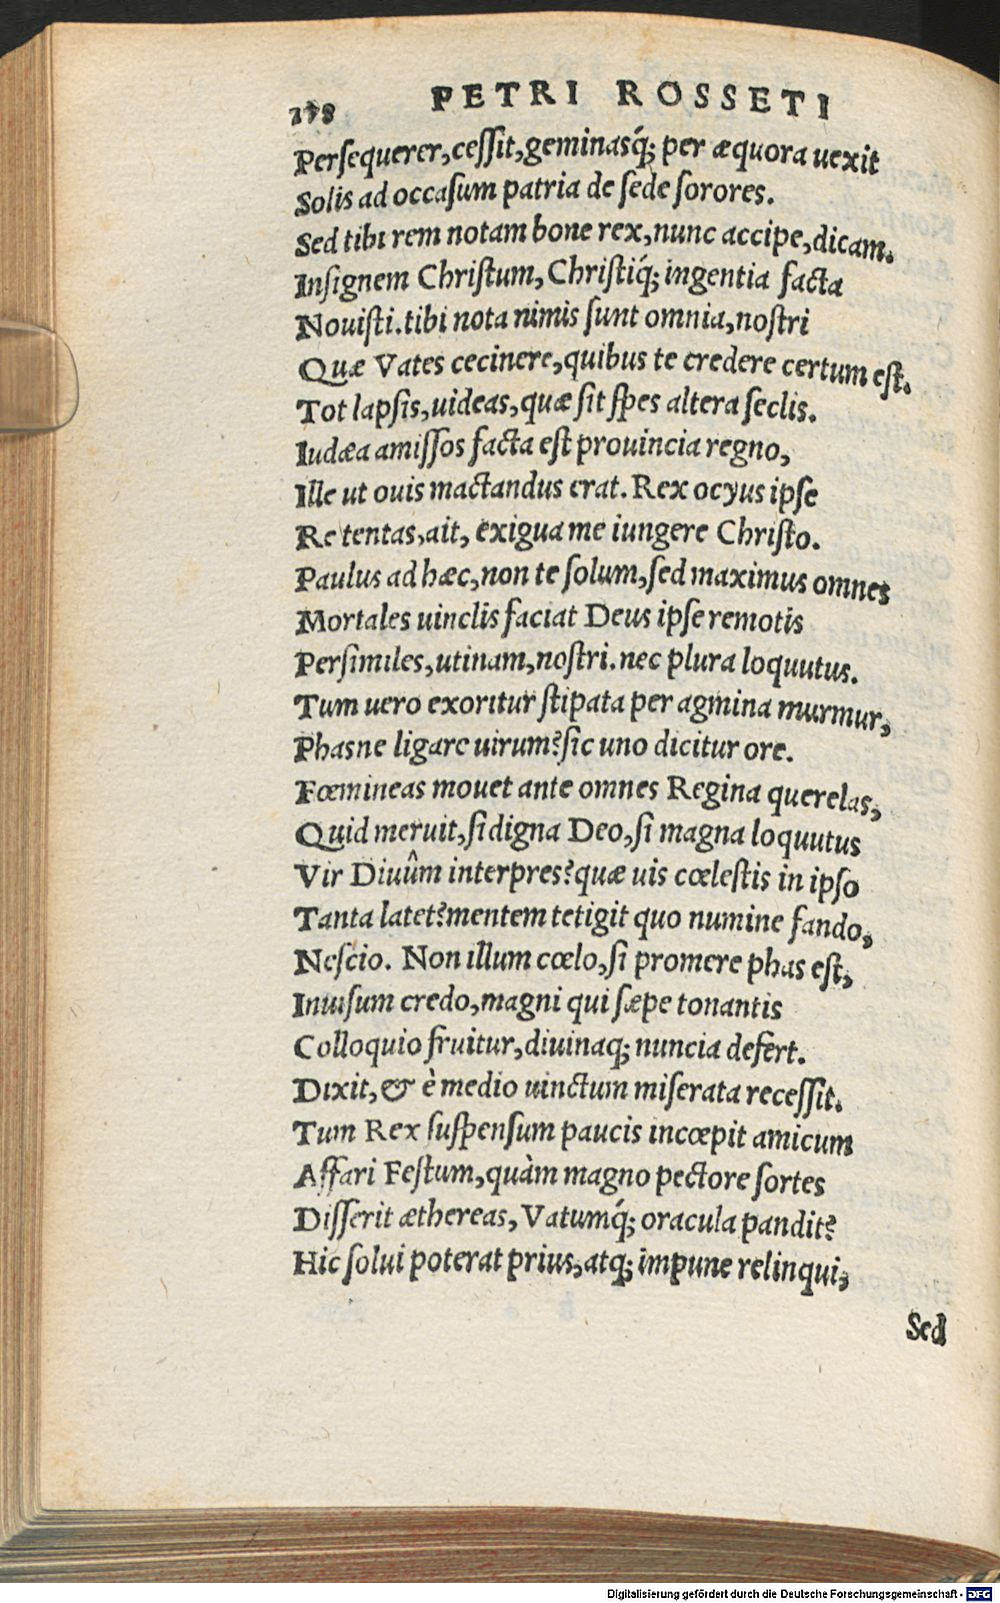 178 PETRI ROSSETI
Persequerer, cessit, geminasq́; per æquora uexit
Solis ad occasum patria de sede sorores.
Sed tibi rem notam bone rex, nunc accipe, dicam.
Insignem Christum, Christiq́; ingentia facta
Nouisti. tibi nota nimis sunt omnia, nostri
Quæ Vates cecinere, quibus te credere certum est.
Tot lapsis, uideas, quæ sit spes altera seclis.
Iudæa amissos facta est prouincia regno,
Ille ut ouis mactandus erat. Rex ocyus ipse
Re tentas, ait, exigua me iungere Christo.
Paulus ad hæc, non te solum, sed maximus omnes
Mortales uinclis faciat Deus ipse remotis
Persimiles, utinam, nostri. nec plura loquutus.
Tum uero exoritur stipata per agmina murmur,
Phasne ligare uirum? sic uno dicitur ore.
Fœmineas mouet ante omnes Regina querelas,
Quid meruit, si digna Deo, si magna loquutus
Vir Diuûm interpres? quæ uis cœlestis in ipso
Tanta latet? mentem tetigit quo numine fando,
Nescio. Non illum cœlo, si promere phas est,
Inuisum credo, magni qui sæpe tonantis
Colloquio fruitur, diuinaq; nuncia defert.
Dixit, & è medio uinctum miserata recessit.
Tum Rex suspensum paucis incœpit amicum
Affari Festum, quàm magno pectore sortes
Disserit æthereas, Vatumq́; oracula pandit?
Hic solui poterat prius, atq; impune relinqui,
Sed
Digitalisierung gefördert durch die Deutsche Forschungsgemeinschaft - DFG